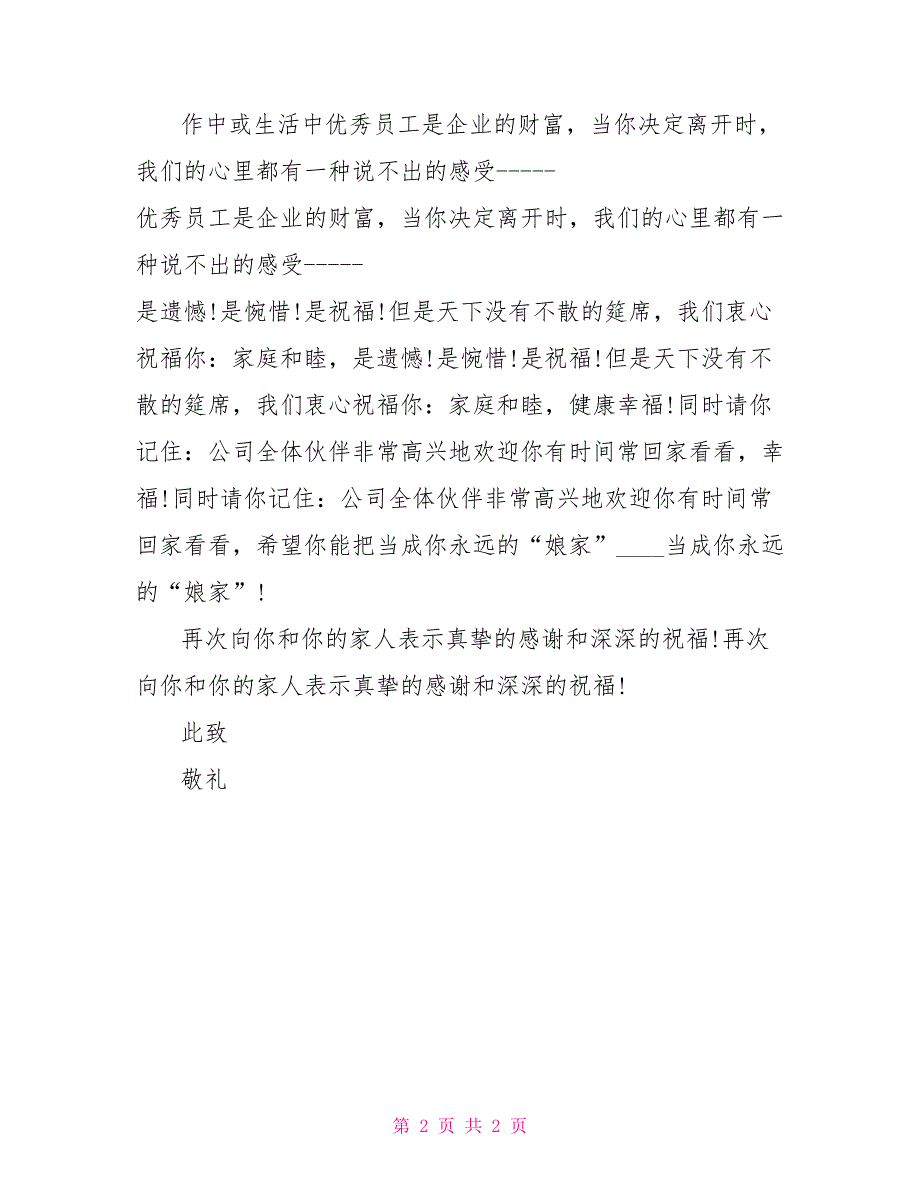 作中或生活中优秀员工是企业的财富，当你决定离开时，
我们的心里都有一种说不出的感受-----
优秀员工是企业的财富，当你决定离开时，我们的心里都有一
种说不出的感受-----
是遗憾!是惋惜!是祝福!但是天下没有不散的筵席，我们衷心
祝福你：家庭和睦，是遗憾!是惋惜!是祝福!但是天下没有不
散的筵席，我们衷心祝福你：家庭和睦，健康幸福!同时请你
记住：公司全体伙伴非常高兴地欢迎你有时间常回家看看，幸
福!同时请你记住：公司全体伙伴非常高兴地欢迎你有时间常
回家看看，希望你能把当成你永远的“娘家”____当成你永远
的“娘家”!
再次向你和你的家人表示真挚的感谢和深深的祝福!再次
向你和你的家人表示真挚的感谢和深深的祝福!
此致
敬礼
第 2 页 共 2 页